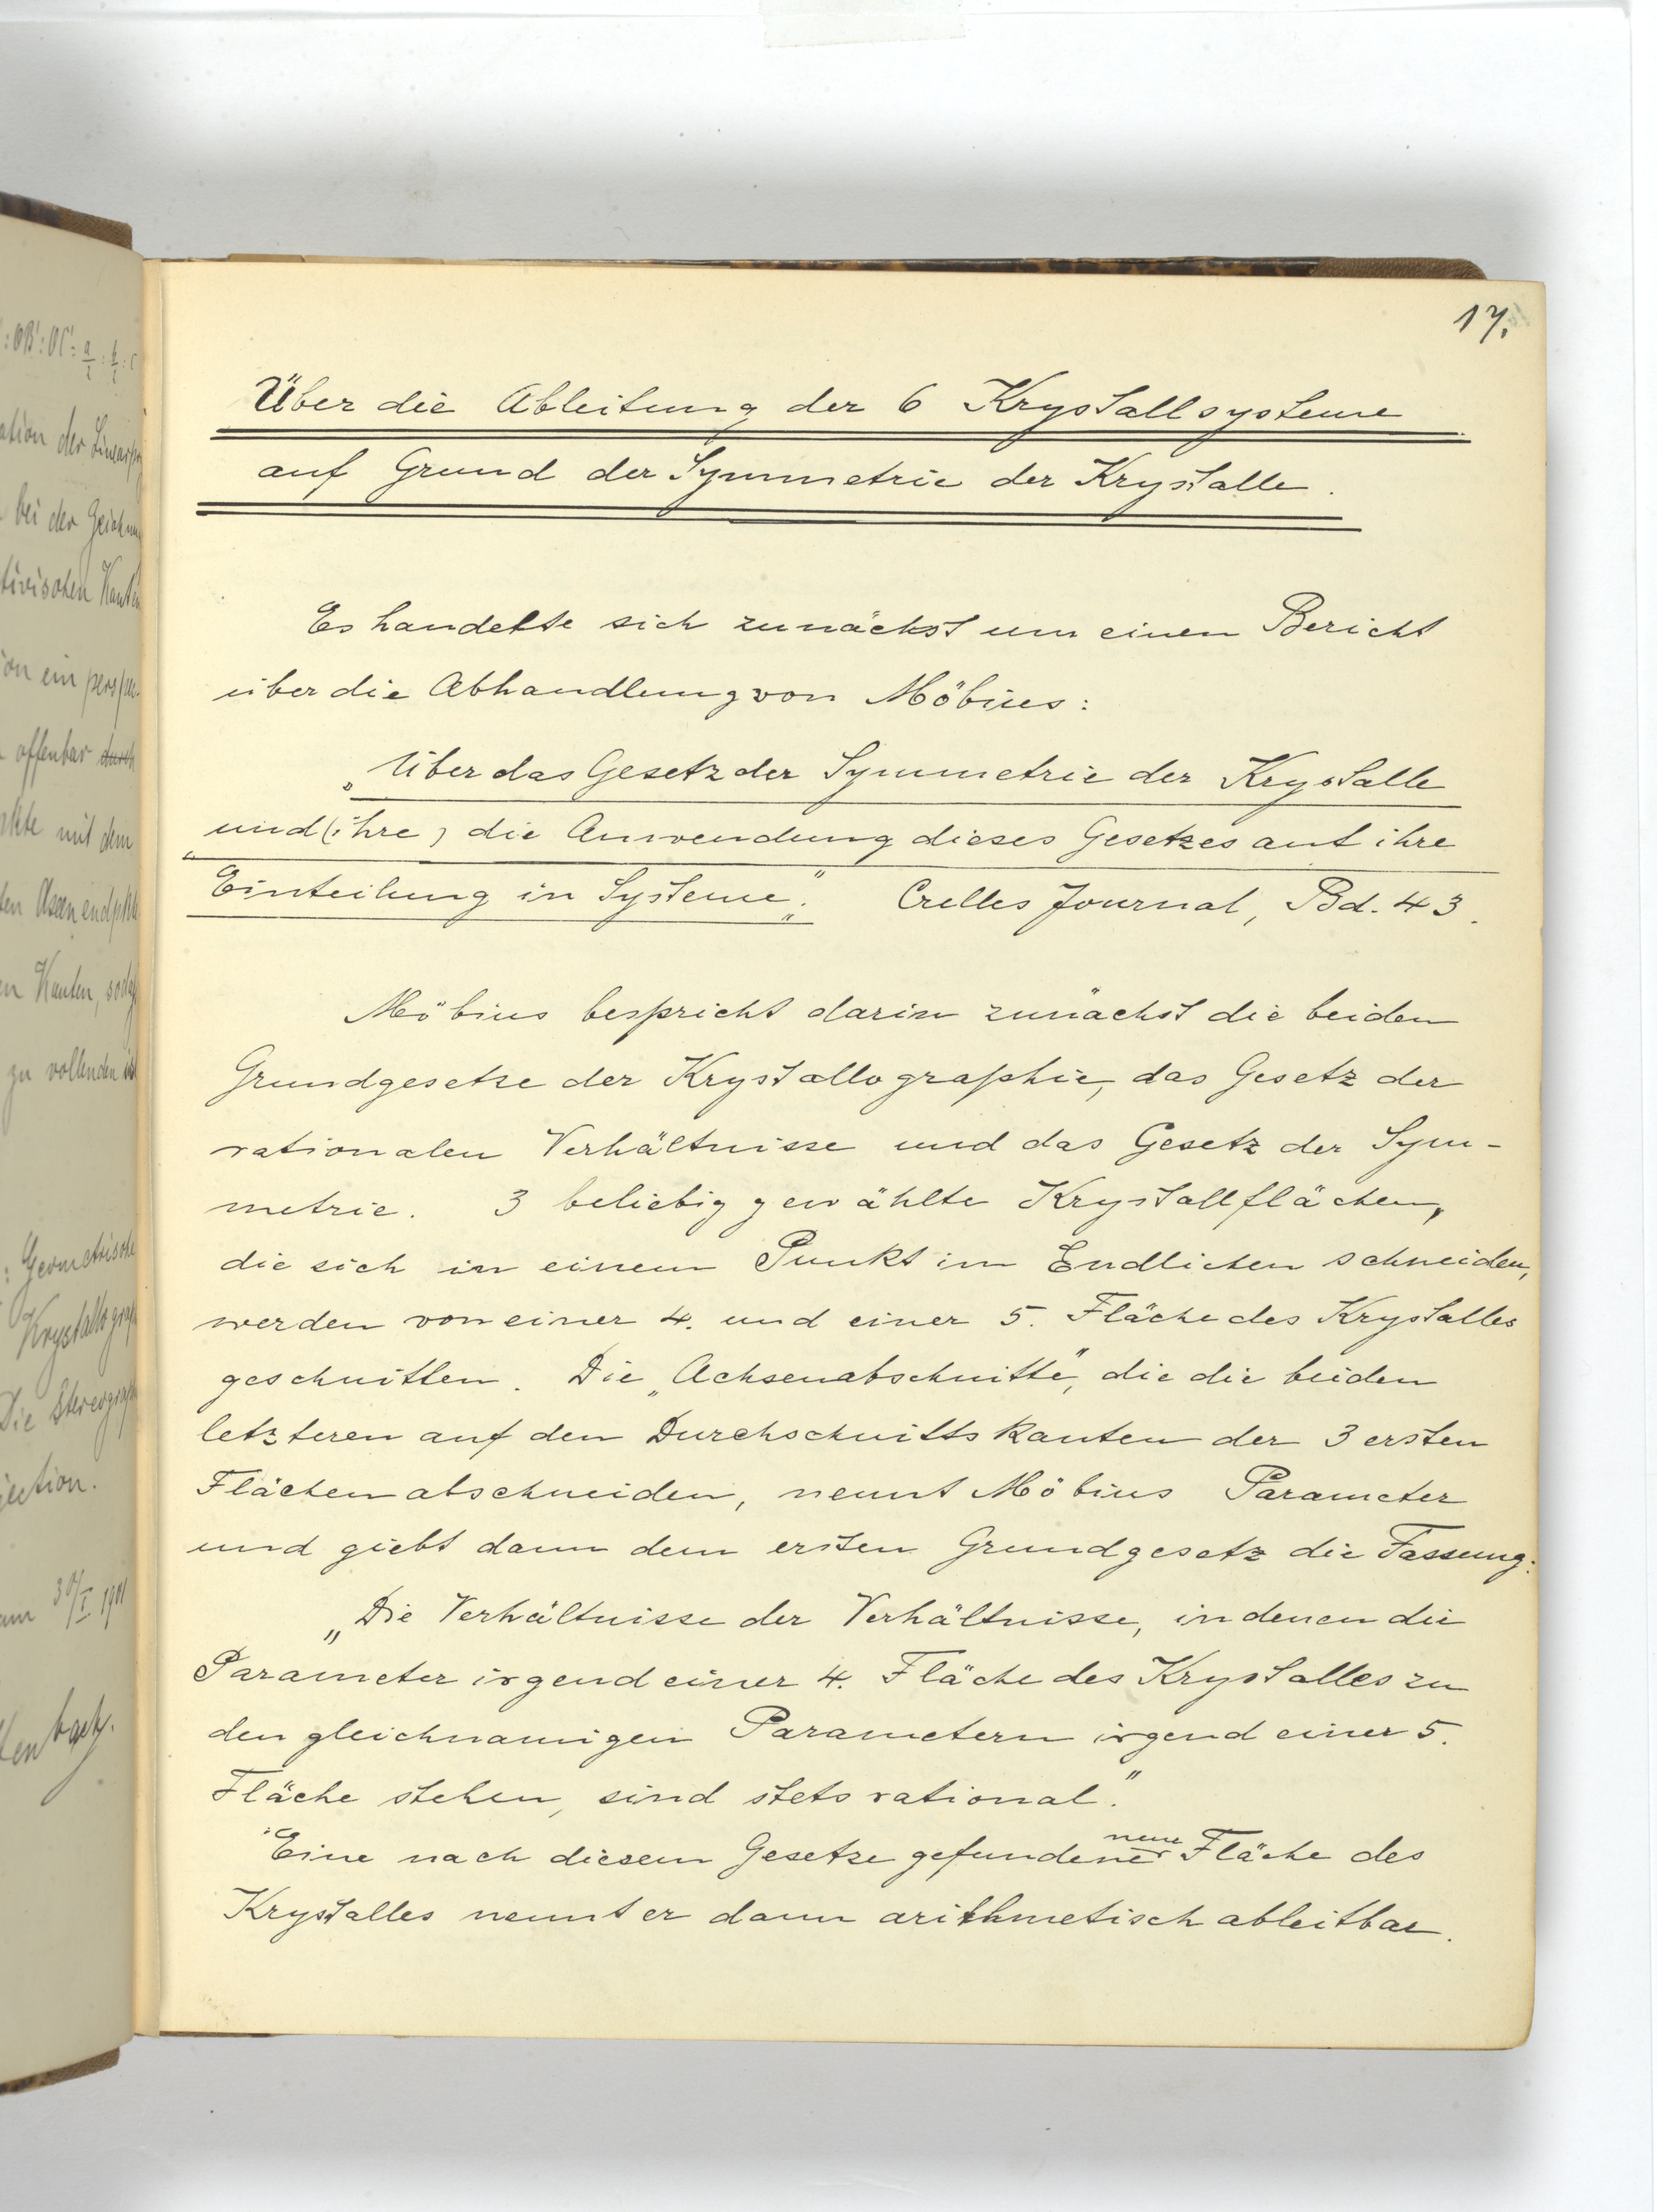 17.
Über die Ableitung der 6 Krystallsysteme
auf Grund der Symmetrie der Krystalle.
Es handelte sich zunächst um einen Bericht
über die Abhandlung von Möbius:
„Über das Gesetz der Symmetrie der Krystalle
und (ihre) die Anwendung dieses Gesetzes auf ihre
Einteilung in Systeme." Crelles Journal, Bd. 43.
Möbius bespricht darin zunächst die beiden
Grundgesetze der Krystallographie, das Gesetz der
rationalen Verhältnisse und das Gesetz der Sym-
metrie. 3 beliebig gewählte Krystallflächen,
die sich in einem Punkt im Endlichen schneiden,
werden von einer 4. und einer 5. Fläche des Krystalles
geschnitten. Die „Achsenabschnitte", die die beiden
letzteren auf den Durchschnittskanten der 3 ersten
Flächen abschneiden, nennt Möbius Parameter
und giebt dann dem ersten Grundgesetz die Fassung:
„Die Verhältnisse der Verhältnisse, in denen die
Parameter irgend einer 4. Fläche des Krystalles zu
den gleichnamigen Parametern irgend einer 5.
Fläche stehen, sind stets rational."
Eine nach diesem Gesetze gefundene neue Fläche des
Krystalles nennt er dann arithmetisch ableitbar.
:OB':OC'=
bei der
ein
offenbar durch
mit dem
Kanten,
zu vollenden
: Geometrische
Die
am 30/I 1901